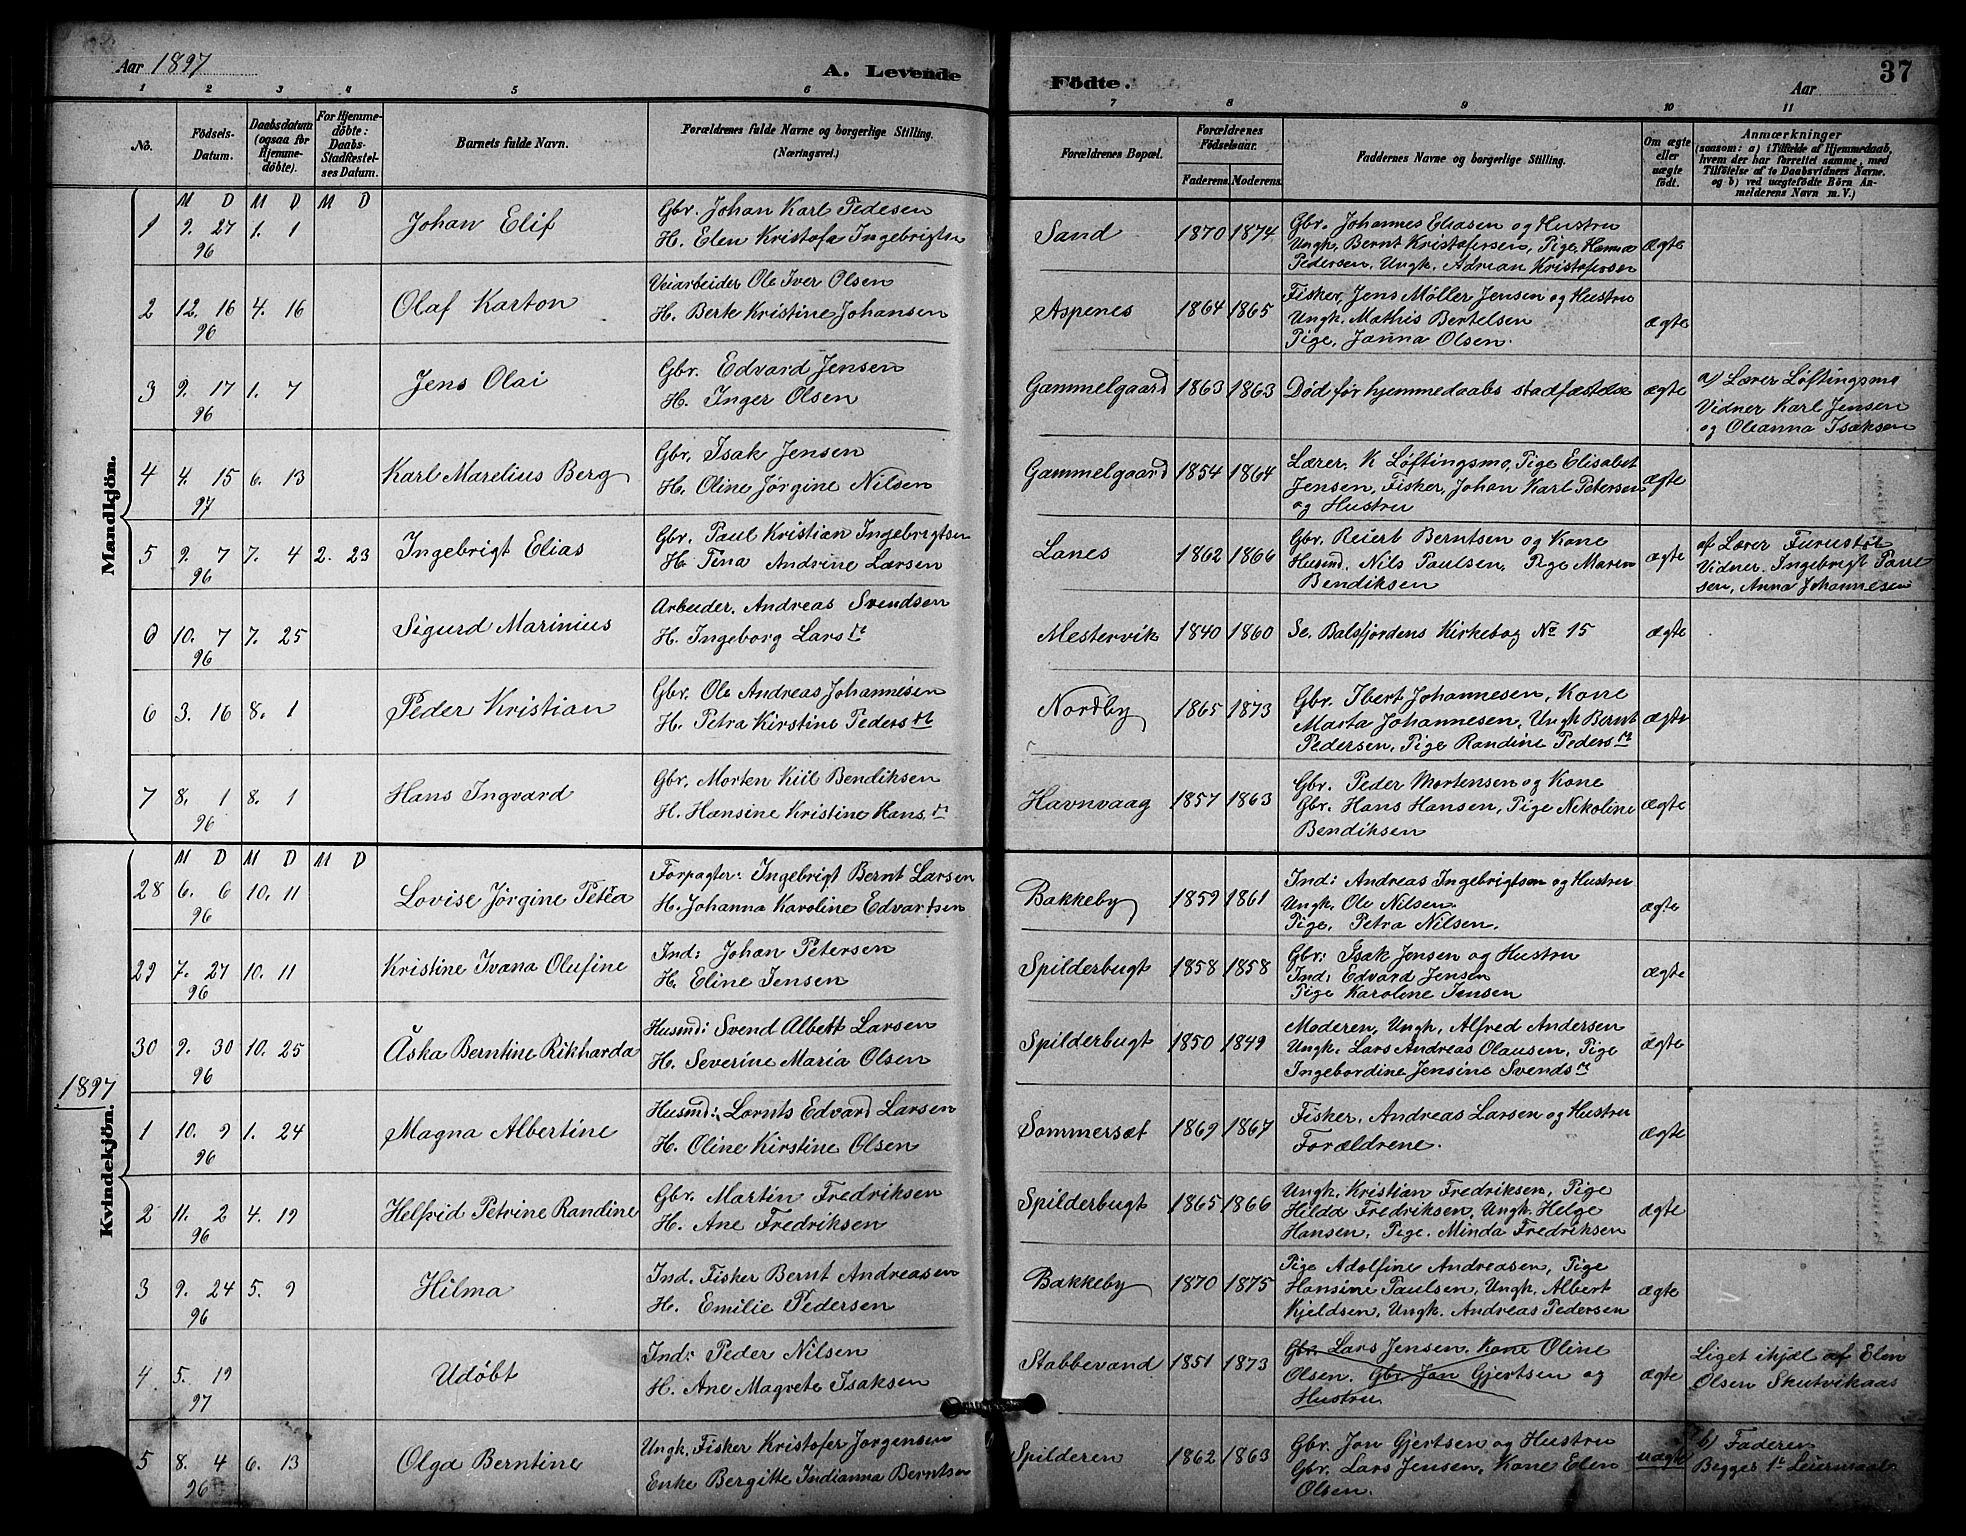 Aar 1897
A. Levende Födte.
Aar
37
1 2 3 4 5 6 7 8 9 10 11
No.
Födsels-Datum.
Daabsdatum (ogsaa for Hjemme-döbte).
For Hjemme-döbte: Daabs-Stadfæstel-ses Datum.
Barnets fulde Navn.
Forældrenes fulde Navne og borgerlige Stilling.
(Næringsvei.)
Forældrenes Bopæl.
Forældrenes Födselsaar.
Faderens. Moderens.
Faddernes Navne og borgerlige Stilling.
Om ægte eller uægte födt.
Anmærkninger
(saasom: a) i Tilfælde af Hjemmedaab,
hvem der har forrettet samme, med
Tilföielse af to Daabsvidners Navne.
og b) ved uægtefödte Börn An-
melderens Navn m. V.)
Mandkjön.
M D M D M D
1 9. 27 96 1. 1 Johan Elif
Gbr. Johan Karl Pedesen
H. Elen Kristofa Ingebrigtsn
Sand 1870 1874
Gbr. Johannes Eliasen og Hustru
Ungk. Bernt Kristofersen, Pige, Hanna
Pedersen, Ungk. Adrian Kristofersen
ægte
2 12. 16 96 4. 16 Olaf Karton
Veiarbeider Ole Iver Olsen
H. Berte Kristine Johansen
Aspenes 1864 1865
Fisker, Jens Møller Jensen og Hustru
Ungk. Mathis Bertelsen
Pige, Janna Olsen.
ægte
3 9. 17 96 1. 7 Jens Olai
Gbr. Edvard Jensen
H. Inger Olsen
Gammelgaard 1863 1863
Død før hjemmedaabs stadfæstelse
ægte
a) Lærer Løftingsmo
Vidner Karl Jensen
og Oleanna Isaksen
4 4. 15 97 6. 13 Karl Marelius Berg
Gbr. Isak Jensen
H. Oline Jørgine Nilsen
Gammelgaard 1854 1864
Lærer, K Løftingsmo, Pige Elisabet
Jensen, Fisker, Johan Karl Petersen
og Hustru
ægte
5 9. 7 96 7. 4 2. 23 Ingebrigt Elias
Gbr. Paul Kristian Ingebrigtsen
H. Tina Andrine Larsen
Lanes 1862 1866
Gbr. Reiert Berntsen og Kone
Husmd. Nils Paulsen, Pige Maren
Bendiksen
ægte
Vidner. Ingebrigt Paul
sen, Anna Johannesen
6 10. 7 96 7. 25 Sigurd Marinius
Arbeider, Andreas Svendsen
H. Ingeborg Larsdt
Mestervik 1840 1860
Se. Balsfjordens Kirkebog No 15
ægte
6 3. 16 8. 1 Peder Kristian
Gbr. Ole Andreas Johannesen
H. Petra Kirstine Pedersdt
Nordby 1865 1873
Gbr. Ibert Johannesen, Kone
Marta Johannesen, Ungk Bernt
Pedersen, Pige Randine Pedersdt
ægte
7 8. 1 96 8. 1 Hans Ingvard
Gbr. Morten Kiil Bendiksen
H. Hansine Kristine Hansdt
Havnvaag 1857 1863
Gbr. Peder Mortensen og Kone
Gbr. Hans Hansen, Pige Nikoline
Bendiksen
ægte
M D M D M D
28 6. 6 96 10. 11 Lovise Jørgine Petrea
Forpagter: Ingebrigt Bernt Larsen
H. Johanna Karoline Edvardsen
Bakkeby 1859 1861
Ind: Andreas Ingebrigtsen og Hustru
Ungk. Ole Nilsen.
Pige, Petra Nilsen.
ægte
29 7. 27 96 10. 11 Kristine Ivana Olufine
Ind: Johan Petersen
H. Eline Jensen
Spilderbugt 1858 1858
Gbr: Isak Jensen og Hustru
Ind: Edvard Jensen
Pige Karoline Jensen
ægte
30 9. 30 96 10. 25 Åska Berntine Rikharda
Husmd: Svend Albert Larsen
H. Severine Maria Olsen
Spilderbugt 1850 1849
Moderen, Ungk, Alfred Andersen
Ungk. Lars Andreas Olausen, Pige
Ingebordine Jensine Svendsdt
ægte
1897
Kvindekjön.
1 10. 9 96 1. 24 Magna Albertine
Husmd: Lornts Edvard Larsen
H. Oline Kirstine Olsen
Sommersæt 1869 1867
Fisker, Andreas Larsen og Hustru
Forældrene.
ægte
2 11. 2 96 4. 19 Helfrid Petrine Randine
Gbr. Martin Fredriksen
H. Ane Fredriksen
Spilderbugt 1865 1866
Ungk. Kristian Fredriksen, Pige
Hilda Fredriksen, Ungk. Helge
Hansen, Pige. Minda Fredriksen
ægte
3 9. 24 96 5. 9 Hilma
Ind. Fisker Bernt Andreasen
H. Emilie Pedersen
Bakkeby 1870 1875
Pige Adolfine Andreasen, Pige
Hansine Paulsen, Ungk. Albert
Kjeldsen, Ungk. Andreas Pedersen
ægte
4 5. 19 97 Udøbt
Ind: Peder Nilsen
H. Ane Magrete Isaksen
Stabbevand 1851 1873
Gbr. Lars Jensen. Kone Oline
Olsen. Gbr Jon Gjertsen og
Hustru
ægte
Liget ihjæl af Elen
Olsen Skutvikaas
5 8. 4 96 6. 13 Olga Berntine
Ungk. Fisker Kristofer Jorgensen
Enke Bergitte Indianna Berntsen
Spilderen 1862 1863
Gbr. Jon Gjertsen og Hustru
Gbr. Lars Jensen, Kone Elen
Olsen.
uægte
b) Faderen
Begges 1ste Leiermaal